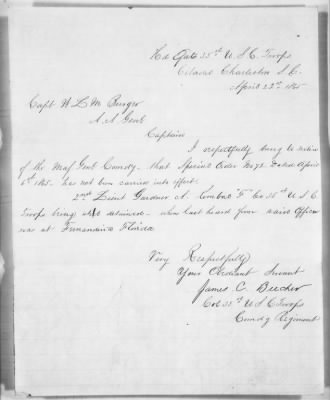 Hd Qrts 35th U S C Troops
Charleston S. C.
April 22nd 1865
Capt W. L. M. Burger
A. A. Genl
Captain
I respectfully bring to notice
of the Maj Genl Comdg. that Special Order No 72 Dated April
6th 1865. has not been carried into effect.
2nd Lieut Gardner A. "F" Co 35th U S C
Troops being still detained. when last heard from said Officer
was at Fernandina Florida
Very Respectfully
Your Obedient Servant
James C. Beecher
Col 35th U S C Troops
Comdg Regiment